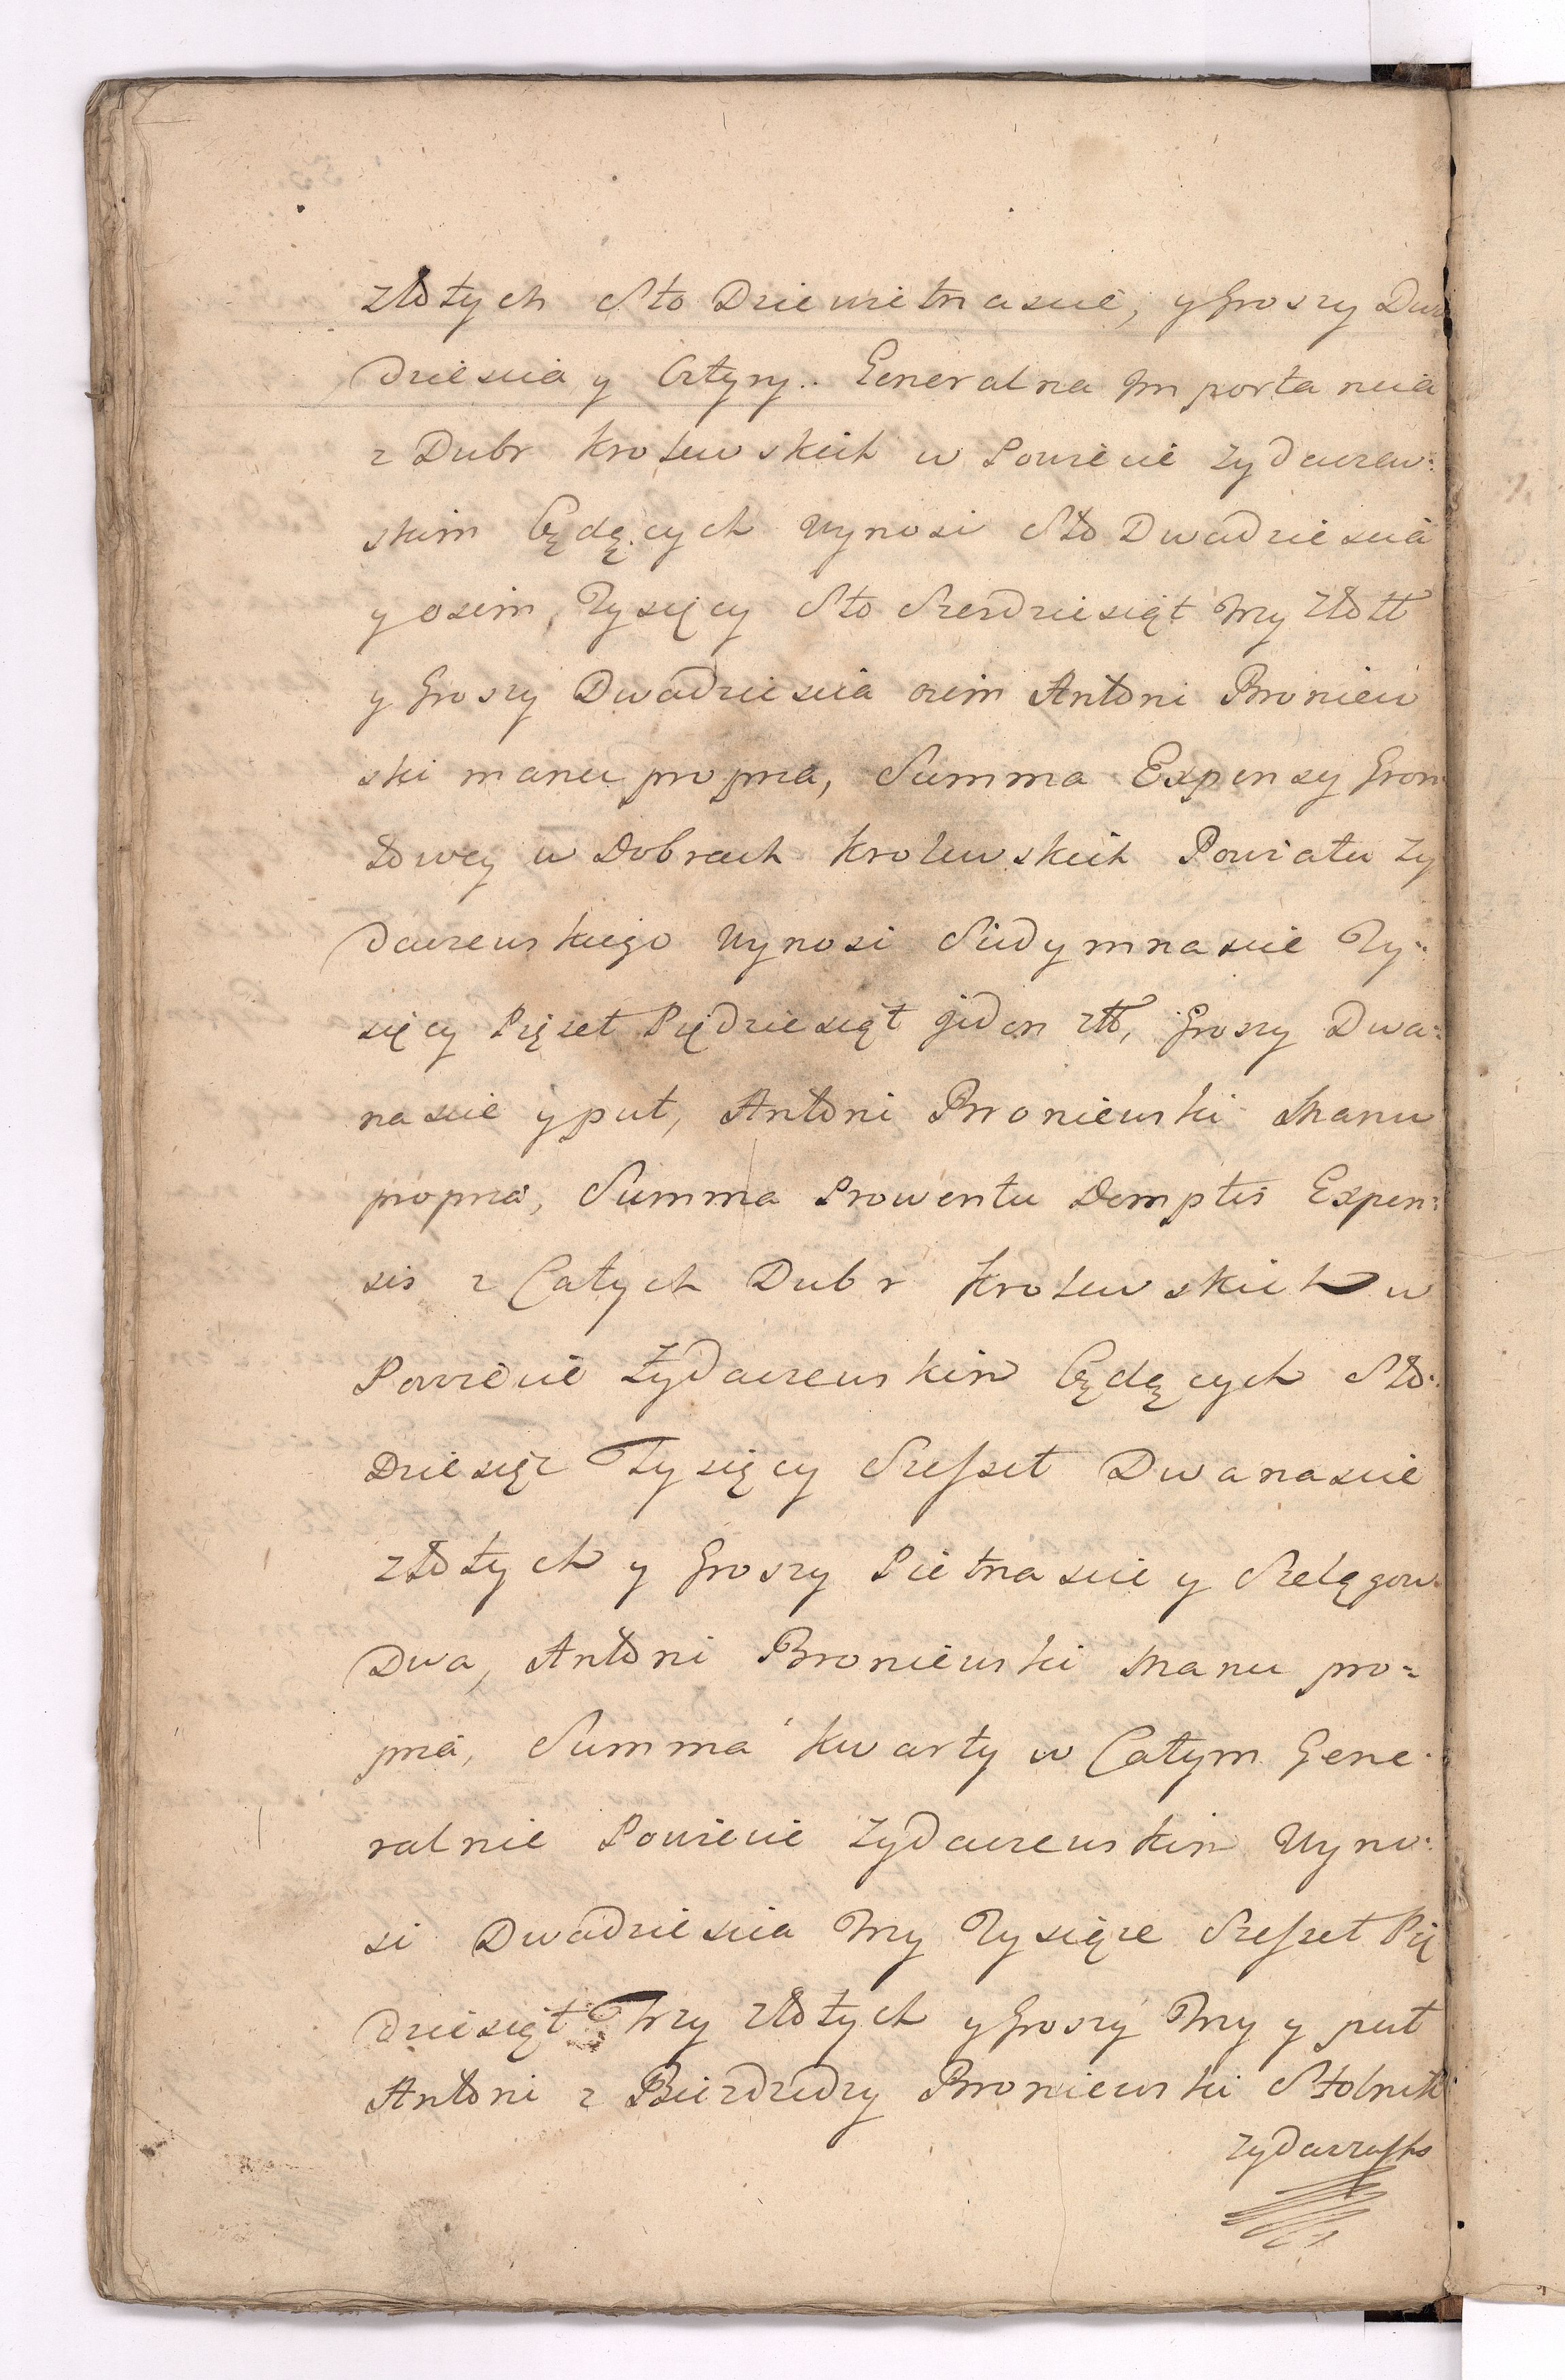 złotych Sto Dziewietnascie, y Groszy Dwa
dziescia y Cztyry. Generalna Importancia
z Dubr Krolewskich w Powiecie Zydaczew:
skim będących Wynosi Sto Dwadziescia
y osim, Tysięcy Sto Szesdziesiąt Trzy Złott
y Groszy Dwadziescia osim Antoni Broniew
ski manu propria, Summa Expensy Gron
towey w Dobrach Krolewskich Powiatu Zy
daczewskiego Wynosi Siedymnascie Ty:
sięcy Pięset Piędziesiąt jiden złł, Groszy Dwa:
nascie y puł, Antoni Broniewski Manu
propria, Summa Prowentu Demptis Expen:
sis z Całych Dubr Krolewskich w
Powiecie Zydaczewskim będących Sto:
Dziesięc Tysięcy Szesset Dwanascie
złotych y Groszy Pietnascie y Szelągow
Dwa, Antoni Broniewski Manu pro=
pria, Summa Kwarty w Całym Gene:
ralnie Powiecie Zydaczewskim Wyno:
si Dwadziescia Trzy Tysiące Szesset Pię
dziesiąt Trzy złotych y Groszy Trzy y puł
Antoni z Biezdziedzy Broniewski Stolnik